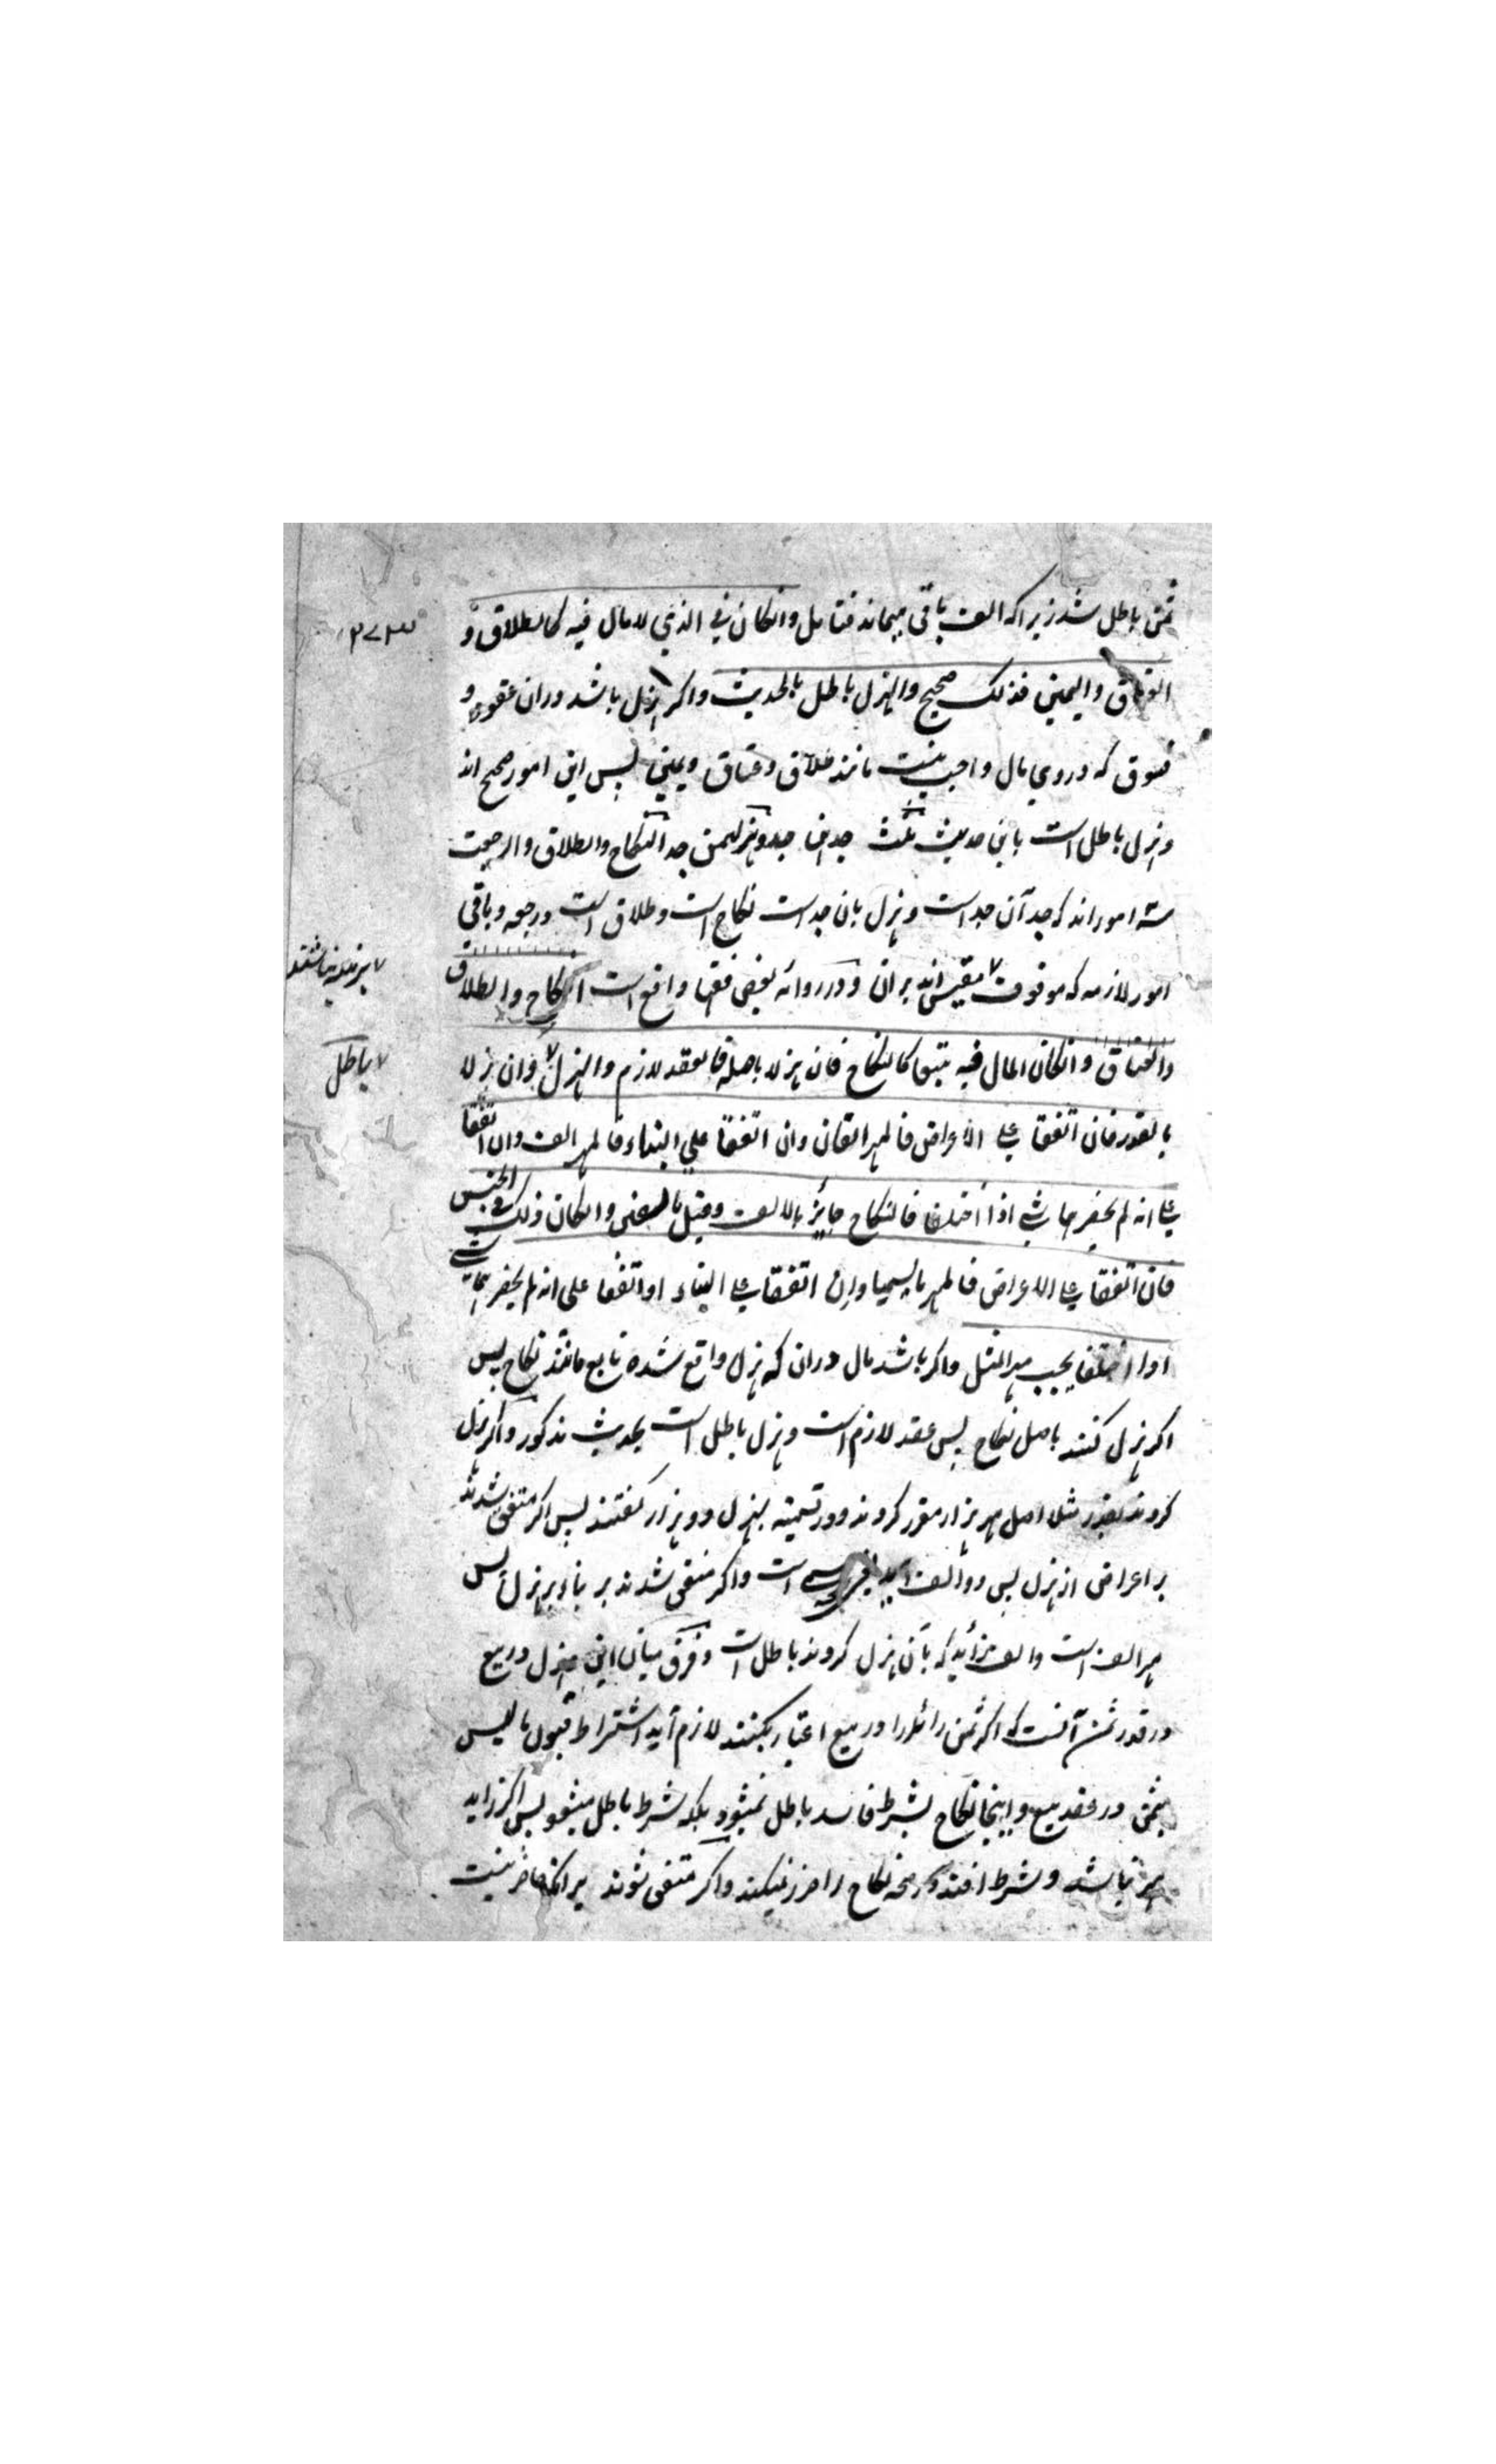 ثمن باطل شد زیرا که الف باقی میماند فتامل وانکان فی الذی لا مال فیه کالطلاق و
العتاق والیمین فذلک صحیح والهزل باطل بالحدیث واکر هزل باشد دران عقود و
فسوق که دروی مال واجب نیست مانند طلاق وعتاق ویمین پس این امور صحیح اند
وهزل باطل است باین حدیث ثلث جدهن جد وهزلهن جد النکاح والطلاق والرجعت
سه امور اند که جد آن جد است وهزل بان جد است نکاح است وطلاق است ورجعه وباقی
امور لازمه که موقوف مقیس اند بران ودر روائه بعضی فقها واقع است النکاح والطلاق
والعتاق وانکان المال فیه تبعا کالنکاح فان هزلا باصله فالعقد لازم والهزل باطل وان هزلا
بالقدر فان اتفقا علی الاعراض فالمهر الفان وان اتفقا علی البناء فالمهر الف وان اتفقا
علی انه لم یحضرهما شی اذا اختلفا فالنکاح جایز بالالف وقیل بالفین وانکان ذلک فی الجنس
فان اتفقا علی الاعراض فالمهر ما سمیا وان اتفقا علی البناء او اتفقا علی انه لم یحضرهما شی
او اختلفا یجب مهر المثل واکر باشد مال دران که هزل واقع شده تابع مانند نکاح پس
اکر هزل کنند باصل نکاح پس عقد لازم است وهزل باطل است بحدیث مذکور واکر هزل
کردند بقدر مثلا اصل مهر هزار مقرر کردند ودر تسمیه بهزل دو هزار کفتند پس اکر متفق شدند
بر اعراض از هزل پس دو الف است واکر متفق شدند بر بناء بر هزل پس
مهر الف است والف زائد که بآن هزل کردند باطل است وفرق میان این هزل در بیع
در قدر ثمن آنست که اکر ثمن زائد را در بیع اعتبار بکنند لازم آید اشتراط قبول ما لیس
بثمن در عقد بیع واینجا نکاح بشرط فاسد باطل نمیشود بلکه شرط باطل میشود پس اکر زاید
مهر نباشد وشرط افتد نکاح را ضرر نمیکند واکر متفق شوند برانکه حاضر نیست
باطل